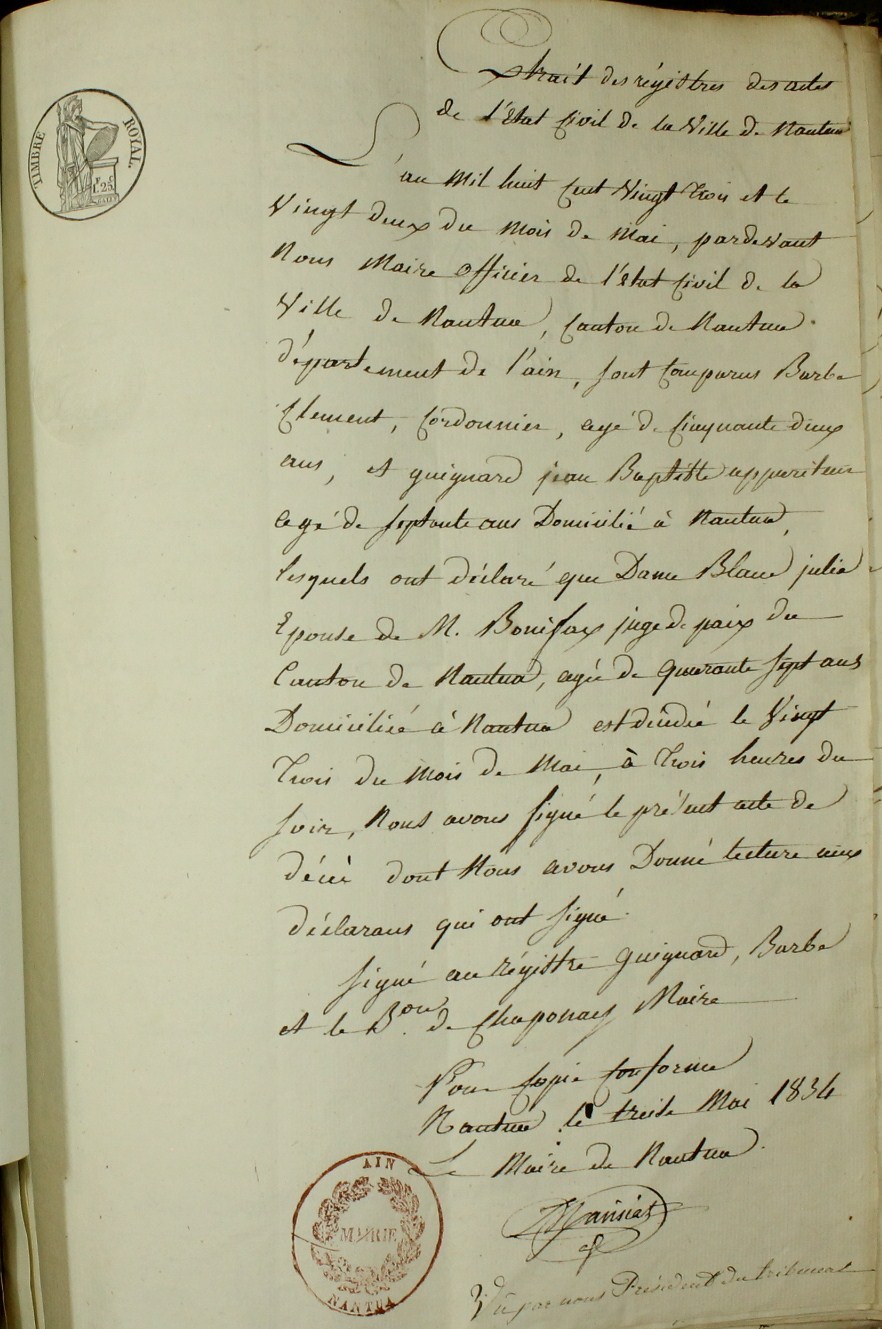 TIMBRE ROYAL.
1.F 25.C
Extrait des régistres des actes
de l'état Civil de la Ville de Nantua
L'an Mil huit Cent Vingt Trois et le
Vingt deux du Mois de Mai, pardevant
Nous Maire officier de l'état Civil de la
Ville de Nantua, Canton de Nantua
département de l'ain, sont Comparus Barbe
Clement, Cordonnier, agé de Cinquante deux
ans, et guignard jean Baptiste appariteur
agé de septante ans Domicilié à Nantua,
lesquels ont déclaré que Dame Blanc julie
Epouse de M. Bonifax juge de paix du
Canton de Nantua, agée de quarante sept ans
Domiciliée à Nantua est décédée le Vingt
Trois du Mois de Mai, à Trois heures du
soir, Nous avons signé le présent acte de
décès dont Nous avons Donné lecture aux
déclarans qui ont signé.
signé au régistre guignard, Barbe
et le Bon. de Chaponay Maire
Pour Copie Conforme
Nantua le treize Mai 1834
Le Maire de Nantua.
AIN
MAIRIE
NANTUA
Vu par nous Président du tribunal